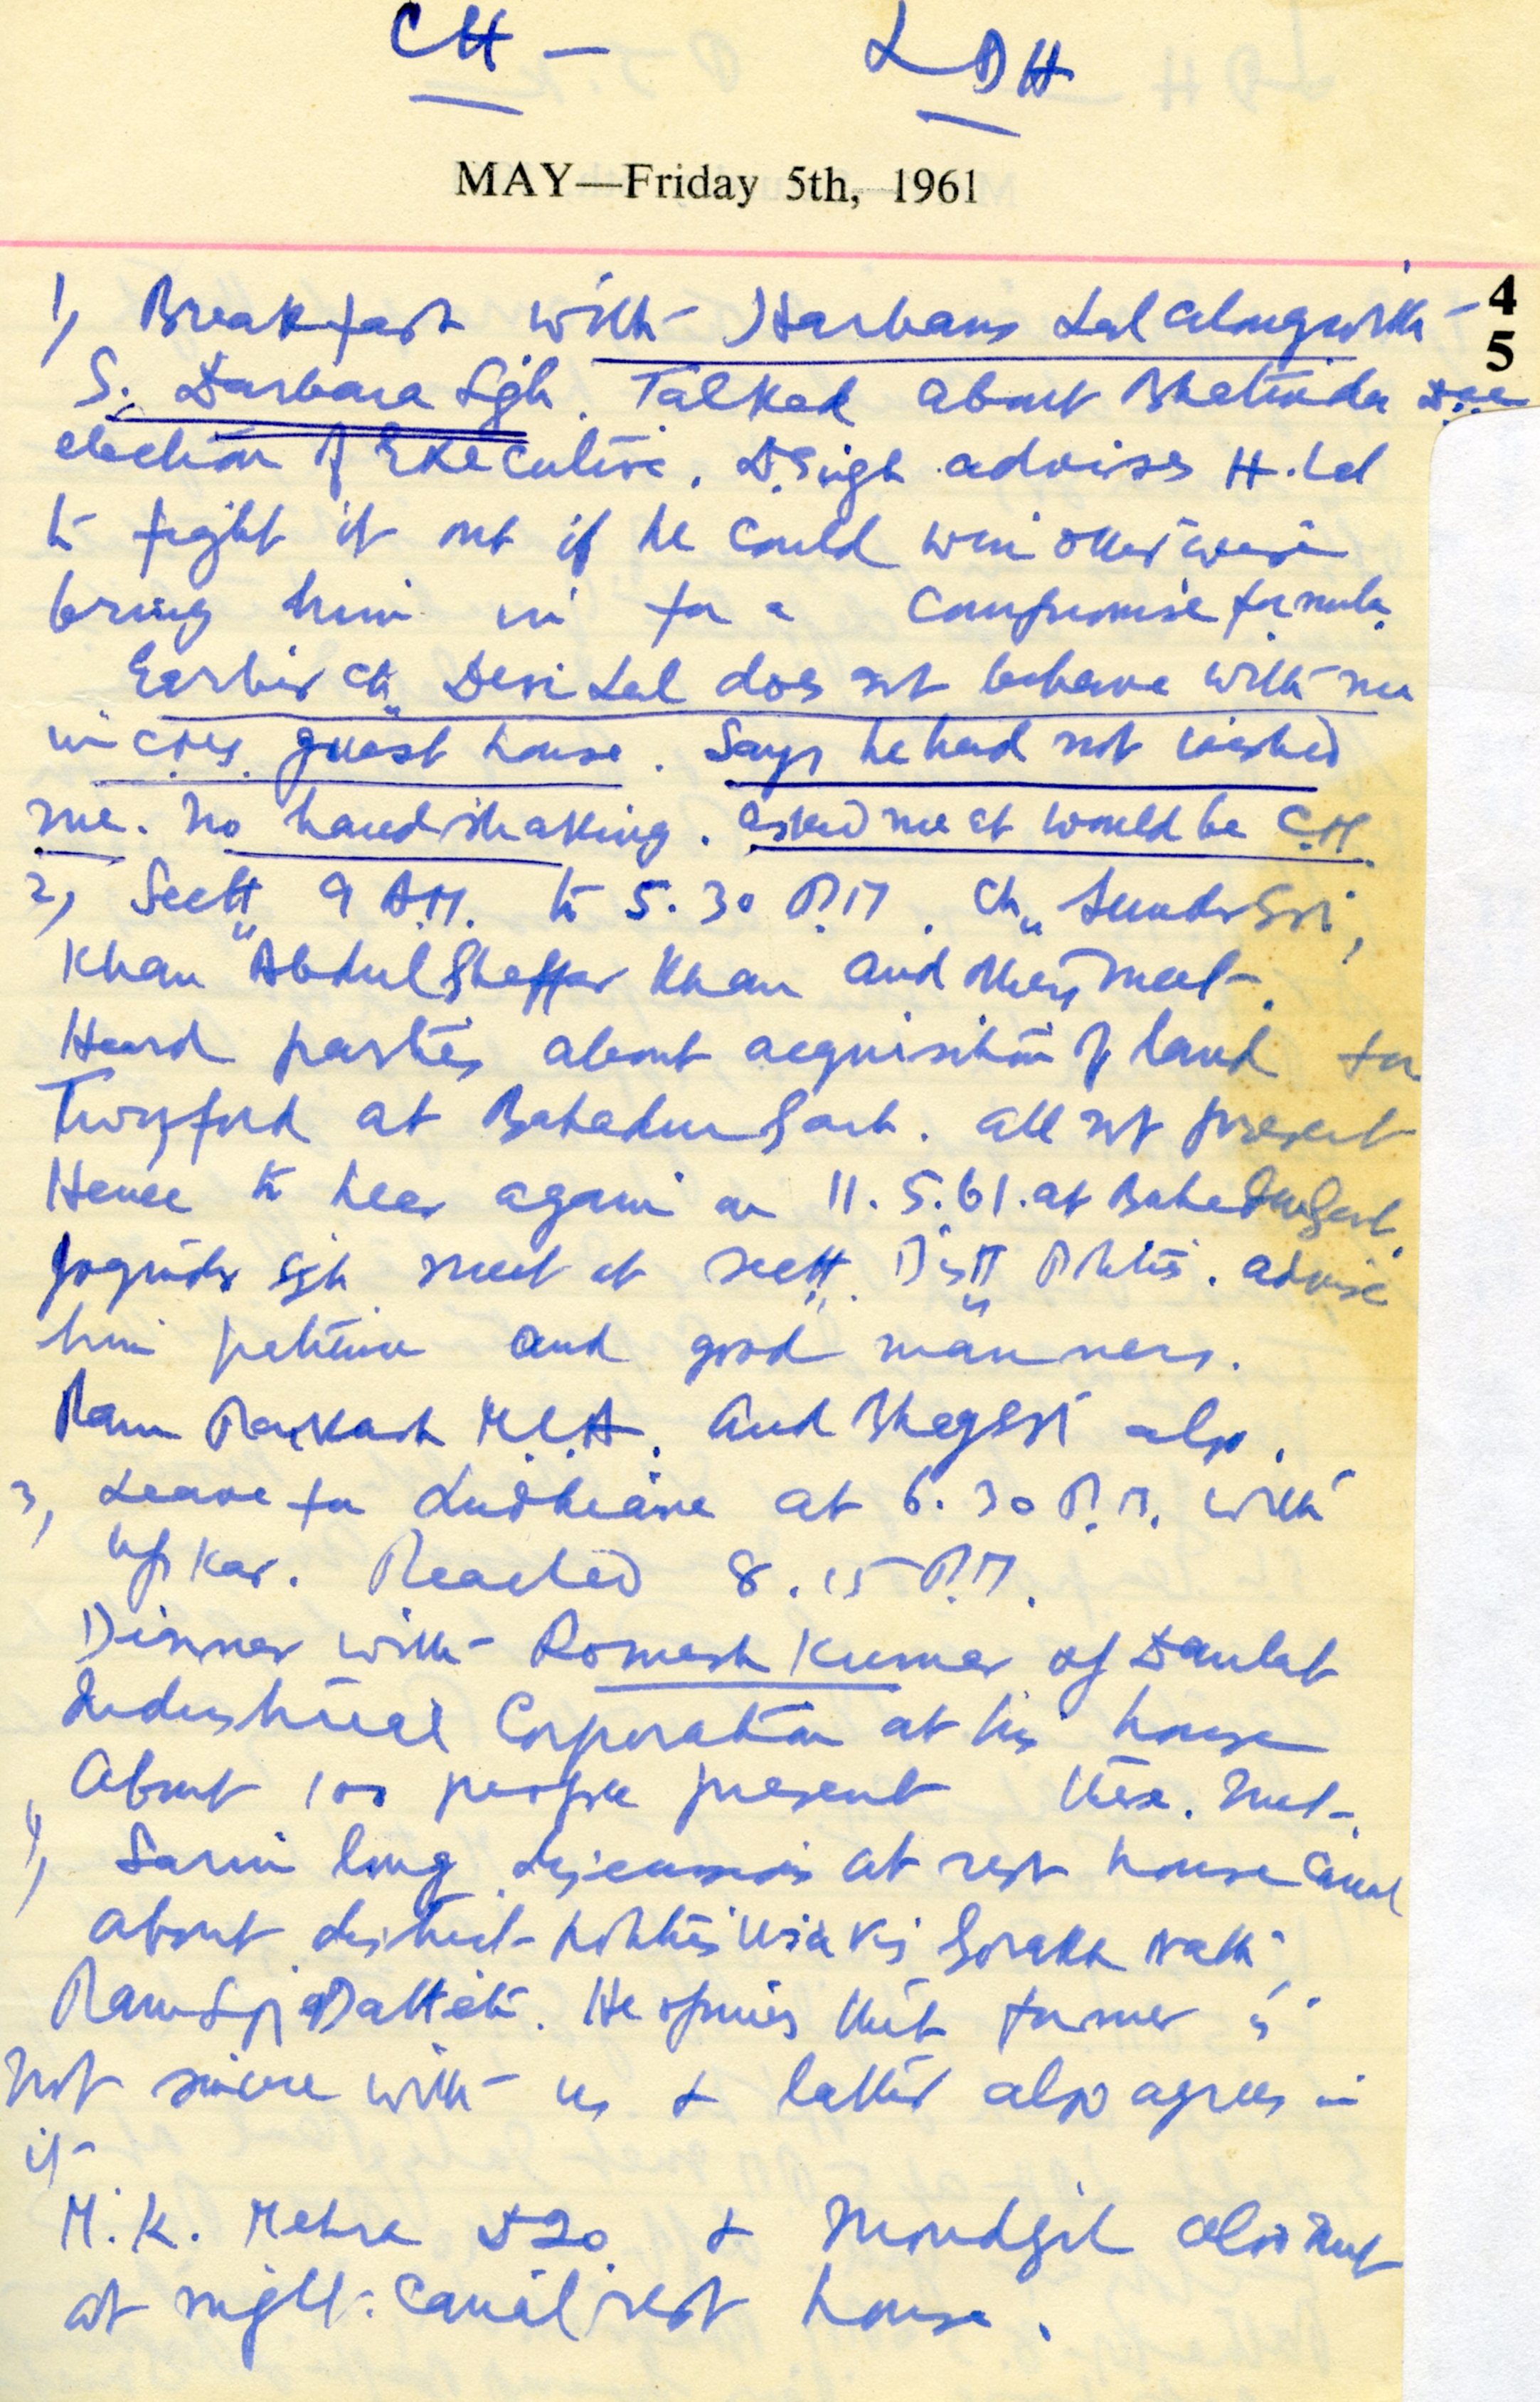 CH — LDH
MAY—Friday 5th, 1961
4
5
1, Breakfast with Harbans Lal alongwith
S. Darbara Sgh. Talked about Bhatinda
election of Executive. D. Singh advises H. Lal
to fight it out if he could win otherwise
bring him in for a compromise formula.
Earlier Ch. Devi Lal does not behave with me
in C.M's. guest house. Says he had not wished
me. No handshaking. asked me at would be C.M.
2, Sectt. 9 A.M. to 5.30 P.M. Ch. Sunder Sgh,
Khan Abdul Ghaffar Khan and others meet.
Heard parties about acquisition of land for
Twyford at Bahadurgarh. all not present
Hence to hear again on 11.5.61. at Bahadurgarh.
Joginder Sgh meet at sectt. Distt. Politics. advise
him patience and good manners.
Ram Parkash M.L.A. and also.
3, Leave for Ludhiana at 6.30 P.M. with
Upkar. Reached 8.15 P.M.
Dinner with Romesh Kumar of Daulat
Industrial Corporation at his house
About 100 people present there. Met.
4, Sarin long discussion at rest house Canal
about district politics vis a vis Gorakh Nath,
Ram He opines that former is
not sincere with us & latter also agrees in
it.
M. K. Mehra & Moudgil also met
at night. Canal rest house.